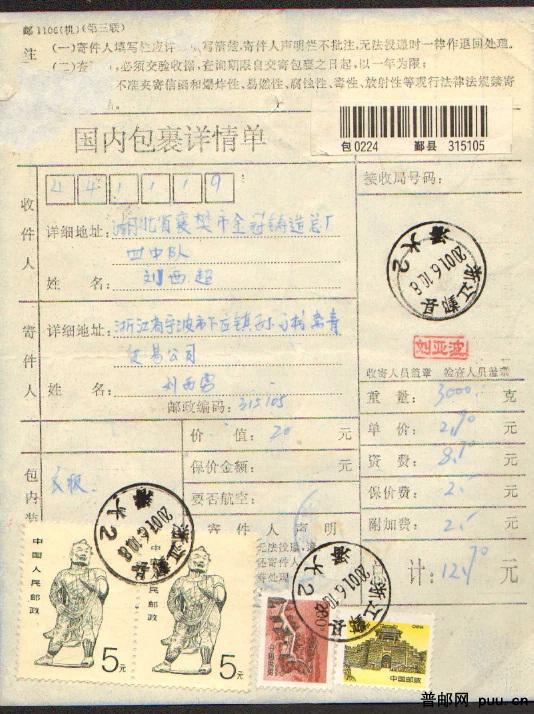 邮1106(机)(第三联)
注
(一)寄件人填写 应详 填写清楚,寄件人声明栏不批注,无法投递时一律作退回处理。
(二)查 ,必须交验收据,查询期限自交寄包裹之日起,以一年为限;
不准夹寄信函和爆炸性、易燃性、腐蚀性、毒性、放射性等或现行法律法规禁寄
国内包裹详情单
包0224 鄞县 315105
441119
接收局号码:
收件人
详细地址:湖北省襄樊市全冠铸造总厂
四中队
姓名:刘西超
浙江鄞县
2001.6.10.8
潘火2
寄件人
详细地址:浙江省宁波市下应镇 青
贸易公司
姓名:刘西
邮政编码:315105
刘亚波
收寄人员盖章 检查人员盖章
重量:3000 克
单价: 元
资费: 元
保价费:2 元
附加费:2 元
计: 元
价值:20 元
保价金额: 元
要否航空:
包内装
衣服
寄件人声明
无法投递,请
还寄件人
寄处理
浙江鄞县
2001.6.10.8
潘火2
浙江鄞县
2001.6.10.8
潘火2
中国人民邮政
5元
中国人民邮政
5元
中国邮政
CHINA
中国邮政
普邮网 puu.cn